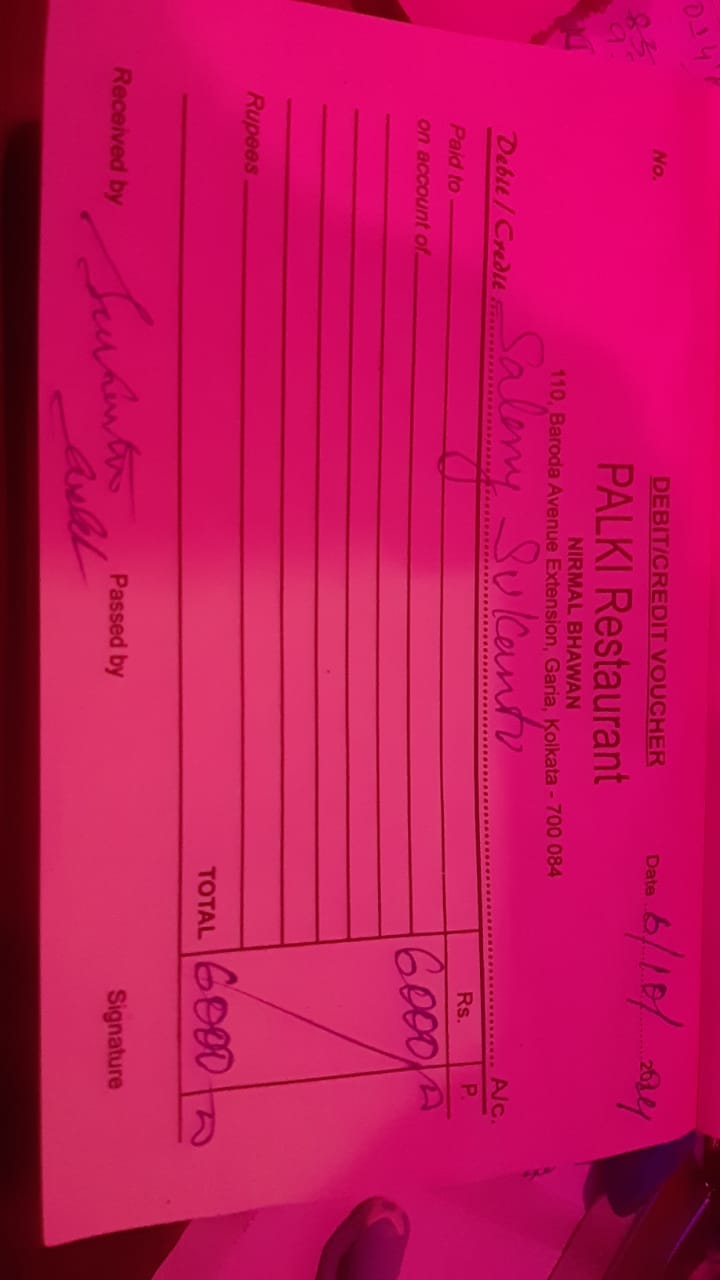 DEBIT/CREDIT VOUCHER
No.
Date 6/10/ 2024
PALKI Restaurant
NIRMAL BHAWAN
110, Baroda Avenue Extension, Garia, Kolkata - 700 084
Debit / Credit Salemy Sukanta A/c.
Paid to
Rs. P.
on account of
6000/-
Rupees
TOTAL 6000/-
Received by Passed by Signature